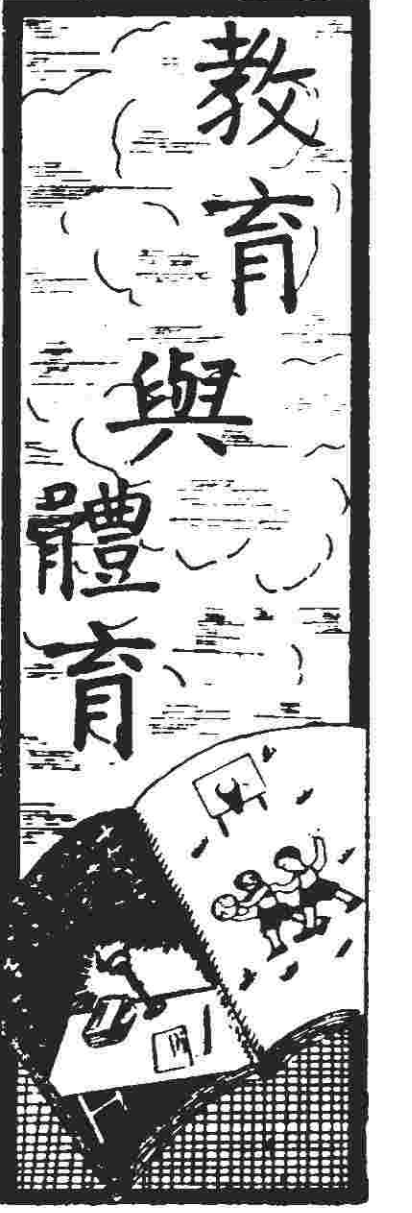 教育與體育